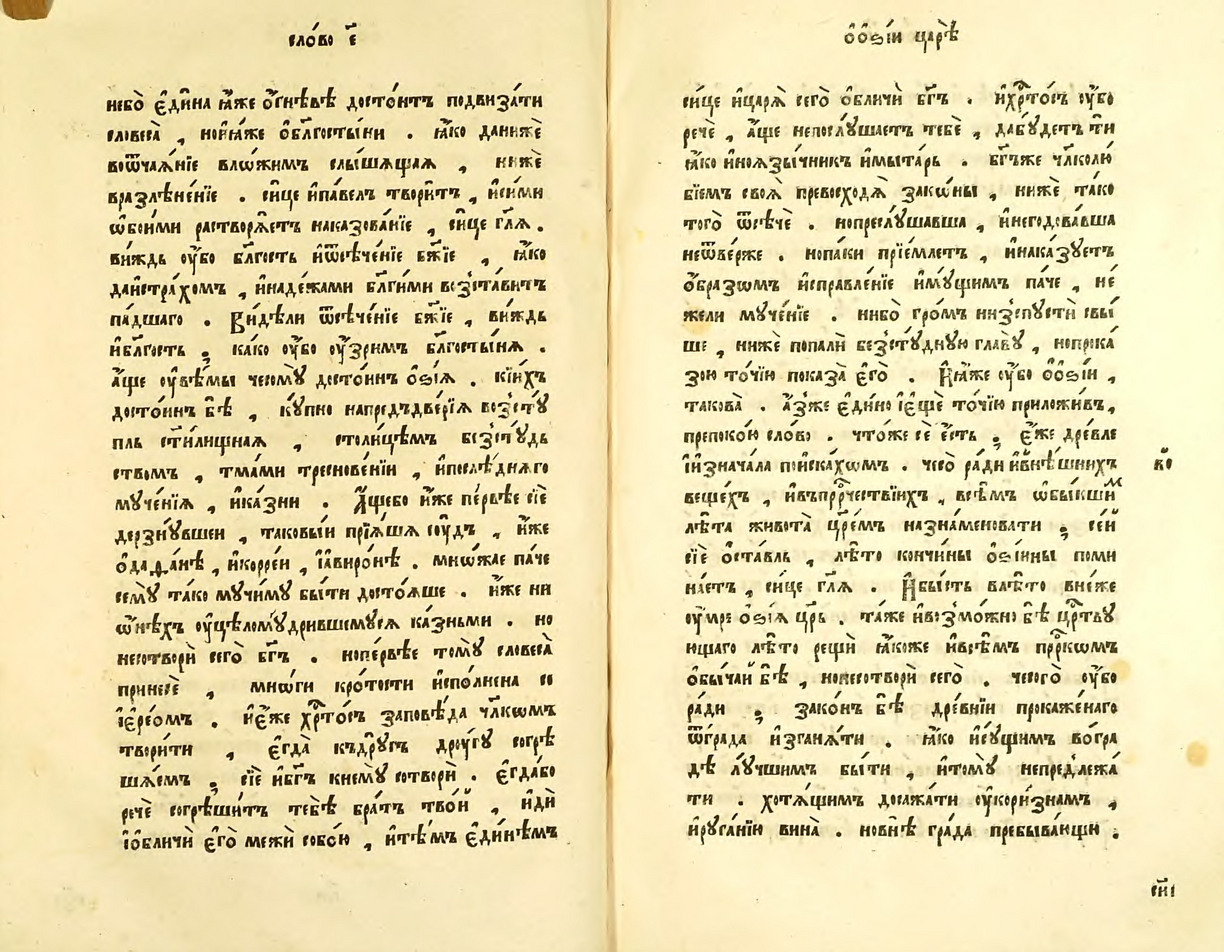 сло́во є҃
небо̀ є҆ди́на ꙗ҆́же ѻ҆́гнѣвѣ досто́итъ подвиза́ти
словеса̀ , но и҆ ꙗ҆́же ѻ҆ бл҃госты́ни . ꙗ҆́ко да нижѐ
во ѿча́ѧнїе влѡ́жимъ слы́шѧщаѧ , нижѐ
в разлѣне́нїе . си́це и҆ па́велъ твори́тъ , и҆ си́ми
ѡ҆бои́ми растворѧ́етъ наказова́нїе , си́це гл҃ѧ .
ви́ждь ᲂу҆̀бо бл҃гость и҆ ѿсѣче́нїе бж҃їе , ꙗ҆́ко
да и҆ стра́хомъ , и҆ наде́жами бл҃ги́ми возста́витъ
па́дшаго . Ви́дѣли ѿсѣче́нїе бж҃їе , ви́ждь
и҆ бл҃гость ; ка́ко ᲂу҆̀бо ᲂу҆́зримъ бл҃госты́нѧ .
а҆́ще ᲂу҆вѣ́мы чесомꙋ̀ досто́инъ ѻ҆сі́ѧ . кі́ихъ
досто́инъ бѣ̀ , кꙋ́пно на предъдве́рїѧ возстꙋ́
пль ст҃и́лищнаѧ , столи́цѣмъ безстꙋ́дь
ствомъ , тма́ми треснове́нїи , и҆ послѣ́днѧго
мꙋче́нїѧ , и҆ ка́зни . А҆́ще бо и҆̀же пе́рвѣе сїѐ
дерзнꙋ́вшеи , таковы́и прїѧ́шѧ сᲂу́дъ , и҆̀же
ѻ҆ дада́нѣ , и҆ корре́и , і҆ авиро́нѣ . мно́жае па́че
семꙋ̀ та́ко мꙋ́чимꙋ бы́ти достоѧ́ше . и҆̀же ни
ѿ ни́хъ ᲂу҆цѣломꙋ́дрившемꙋсѧ ка́зньми . но
не сотворѝ сего̀ бг҃ъ . но пе́рвѣе томꙋ̀ словеса̀
принесѐ , мно́ги кро́тости и҆спо́лнена со
і҆ере́омъ . и҆ є҆́же хрⷭ҇то́съ заповѣ́да чл҃кѡмъ
твори́ти , є҆гда̀ къ дрꙋ́гъ дрᲂу́гꙋ согрѣ
ша́емъ ; сїѐ и҆ бг҃ъ к немꙋ̀ сотворѝ . є҆гда́ бо
речѐ согрѣши́тъ тебѣ̀ бра́тъ тво́й , и҆дѝ
і҆ ѡ҆бличѝ є҆го̀ межѝ собо́ю , и҆ тѣ́мъ є҆ди́нѣмъ
ѻ҆ ѻ҆сі́и царѣ̀
си́це и҆ царѧ̀ сего̀ ѻ҆бличѝ бг҃ъ . и҆ хрⷭ҇то́съ ᲂу҆̀бо
речѐ , а҆́ще не послꙋ́шаетъ тебѐ , да бꙋ́детъ ти
ꙗ҆́ко и҆ноѧзы́чникъ и҆ мыта́рь . бг҃ъ же чл҃колю́
бїемъ своѧ̀ превосходѧ̀ зако́ны , нижѐ та́ко
того̀ ѿсѣчѐ . но преслꙋ́шавша , и҆ негодова́вша
не ѿве́рже . но па́ки прїе́млетъ , и҆ наказꙋ́етъ
ѻ҆́бразѡмъ и҆справле́нїе и҆мꙋ́щимъ па́че , не́
жели мꙋче́нїе . ни бо̀ гро́мъ низпꙋстѝ свы́
ше , нижѐ попалѝ безстꙋ́днꙋю главꙋ̀ , но прока
зо́ю то́чїю показа̀ є҆го̀ . И҆ ꙗ҆́же ᲂу҆̀бо ѻ҆ ѻ҆сі́и ,
такова̀ . а҆́з же є҆ди́но і҆ є҆щѐ то́чїю приложи́въ ,
препоко́ю сло́во . что́ же сѐ є҆́сть ; є҆́же дре́вле
і҆ и҆знача́ла пои́скахомъ . чесо̀ ра́ди и҆ внѣ́шнихъ
ко҃
ве́щехъ , и҆ въ прⷪ҇ро́чествїихъ , всѣ́мъ ѡ҆бы́кшиⷨ
лѣ́та живота̀ цр҃е́мъ назна́меновати ; се́й
сїѐ ѻ҆ста́вль , лѣ́то кончи́ны ѻ҆сі́ины поми
на́етъ , си́це гл҃ѧ . И҆ бы́сть в лѣ́то в не́же
ᲂу҆́мре ѻ҆сі́ѧ цр҃ь . та́же и҆ возмо́жно бѣ̀ црⷭ҇твꙋ
ющаго лѣ́то рещѝ ꙗ҆́коже и҆ всѣ́мъ прⷪ҇ро́кѡмъ
ѻ҆бы́чай бѣ̀ , но не сотворѝ сего̀ . чесо́го ᲂу҆̀бо
ра́ди ; зако́нъ бѣ̀ дре́внїи прокаже́наго
ѿ гра́да и҆згана́ти . ꙗ҆́ко и҆ сꙋ́щимъ во гра
дѣ лꙋ́чшимъ бы́ти , и҆ томꙋ̀ не предлежа́
ти . хотѧ́щимъ досажа́ти ᲂу҆кори́знамъ ,
и҆ рꙋга́нїю вина̀ . но внѣ̀ гра́да пребыва́ющи ;
сн҃і